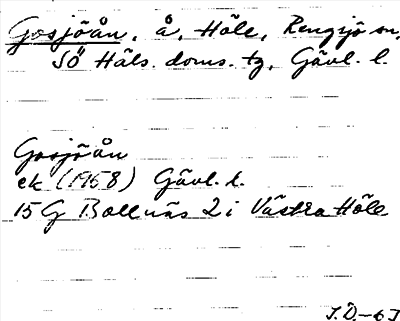 Gosjöån, å, Höle, Rengsjö sn,
SÖ Häls. doms. tg, Gävl. l.
Gosjöån
ek (1958) Gävl. l.
15 G Bollnäs 2 i Västra Höle
J.Ö.-63